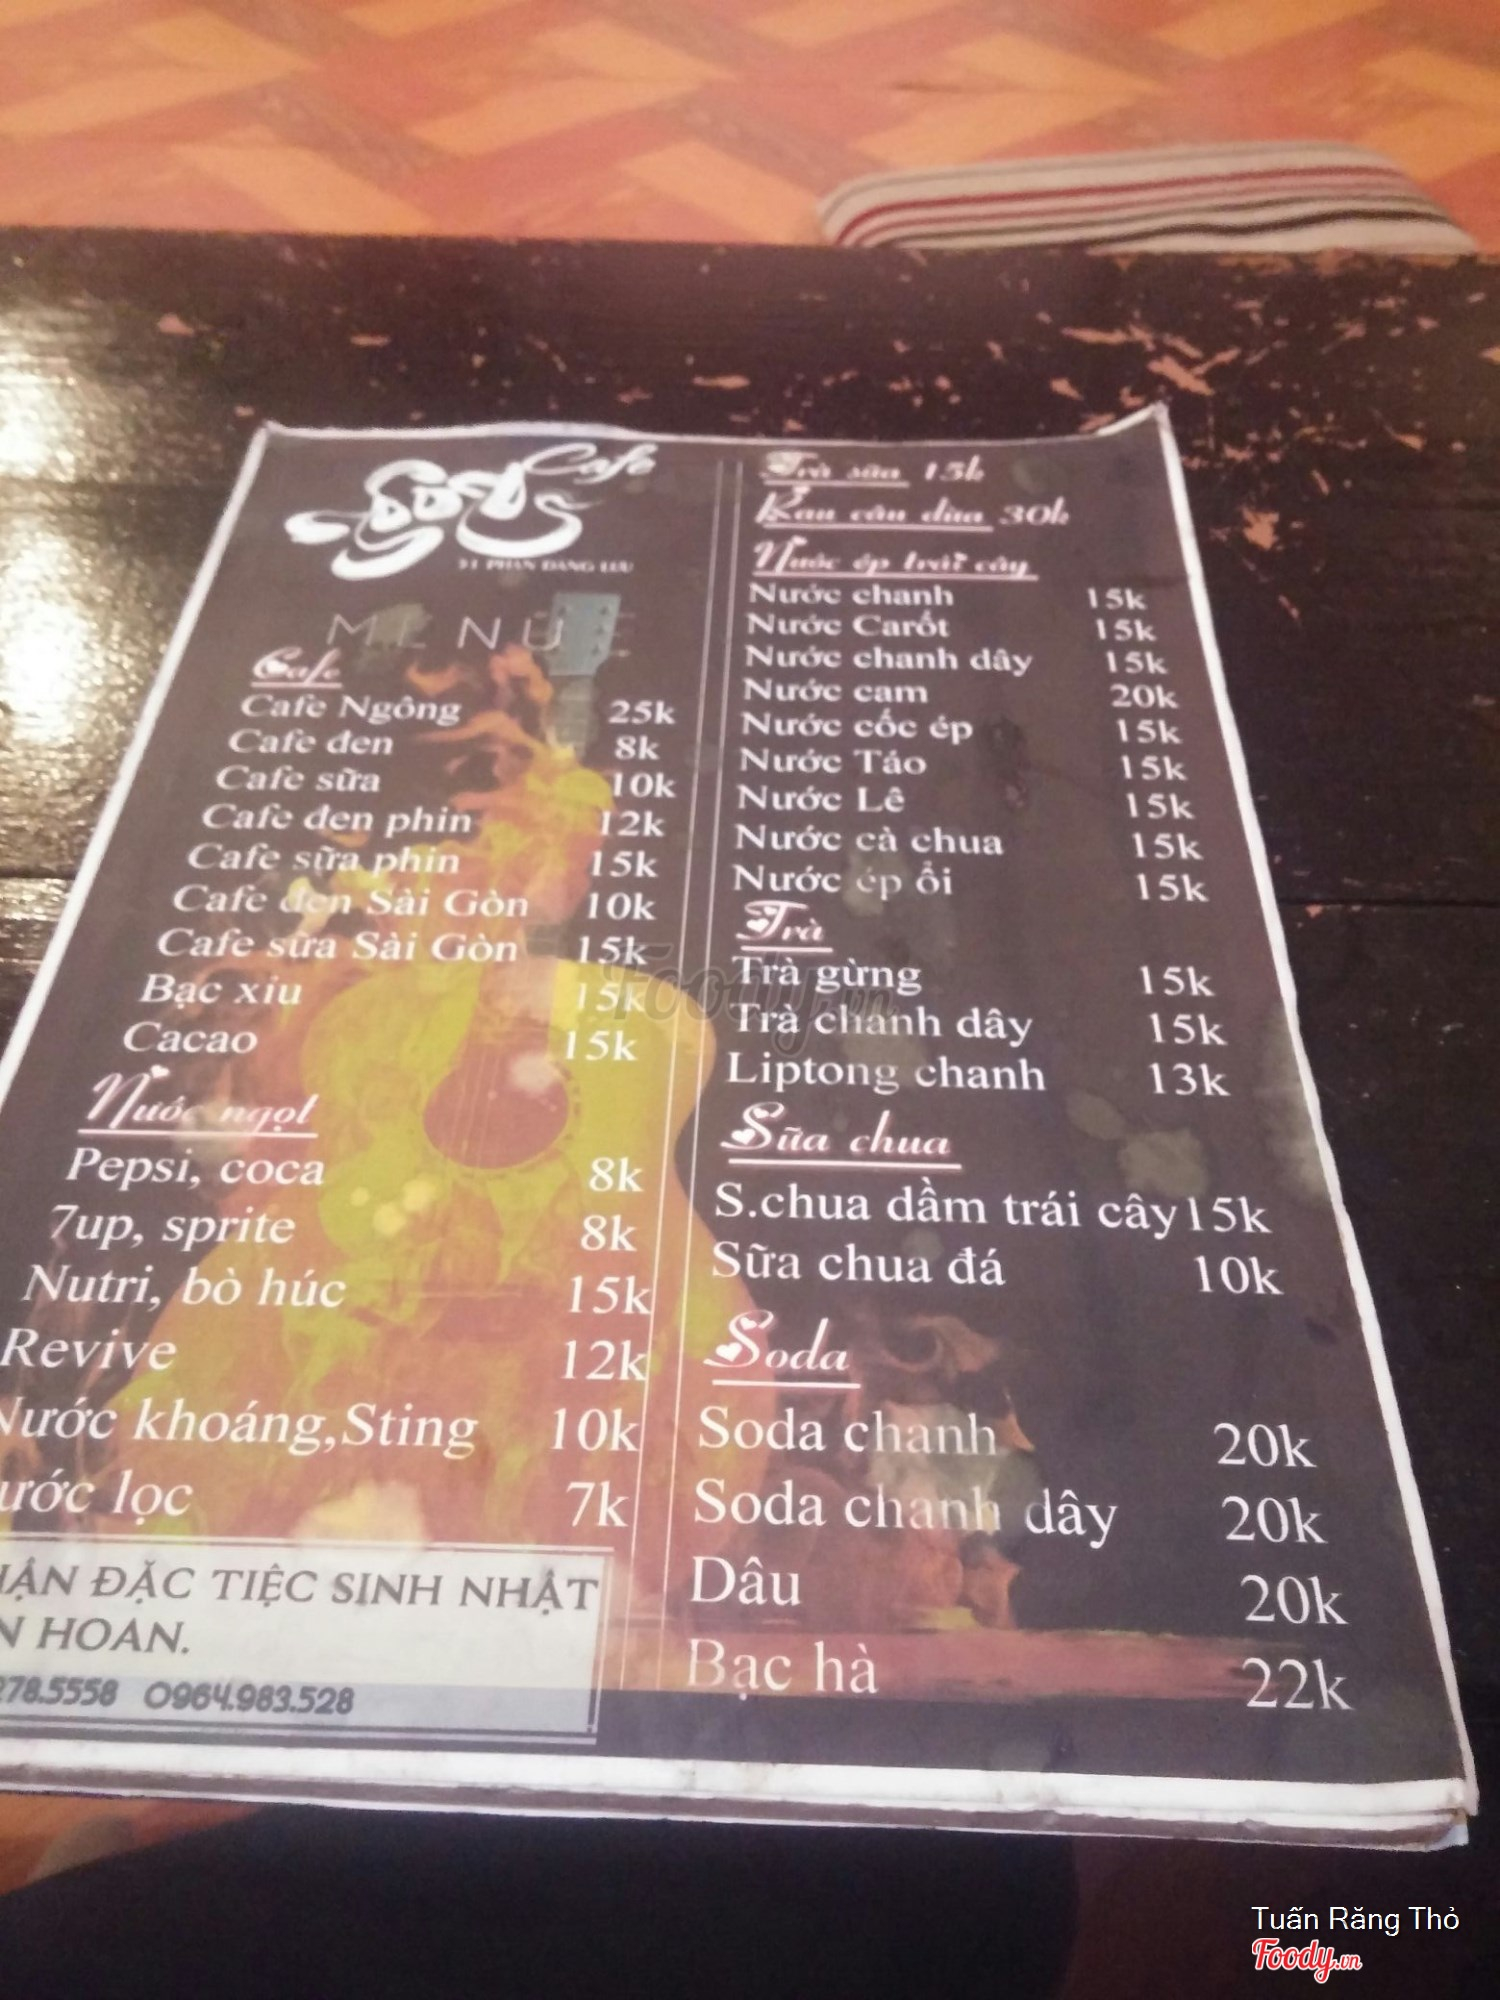 Cafe
Ngông
51 PHAN ĐĂNG LƯU
MENU
Cafe
Cafe Ngông 25k
Cafe đen 8k
Cafe sữa 10k
Cafe đen phin 12k
Cafe sữa phin 15k
Cafe đen Sài Gòn 10k
Cafe sữa Sài Gòn 15k
Bạc xiu 15k
Cacao 15k
Nước ngọt
Pepsi, coca 8k
7up, sprite 8k
Nutri, bò húc 15k
Revive 12k
Nước khoáng,Sting 10k
ước lọc 7k
ẬN ĐẶC TIỆC SINH NHẬT
N HOAN.
278.5558 0964.983.528
Trà sữa 15k
Rau câu dừa 30k
Nước ép trái cây
Nước chanh 15k
Nước Carốt 15k
Nước chanh dây 15k
Nước cam 20k
Nước cốc ép 15k
Nước Táo 15k
Nước Lê 15k
Nước cà chua 15k
Nước ép ổi 15k
Trà
Trà gừng 15k
Trà chanh dây 15k
Liptong chanh 13k
Sữa chua
S.chua dầm trái cây 15k
Sữa chua đá 10k
Soda
Soda chanh 20k
Soda chanh dây 20k
Dâu 20k
Bạc hà 22k
Foody.vn
Tuấn Răng Thỏ
Foody.vn